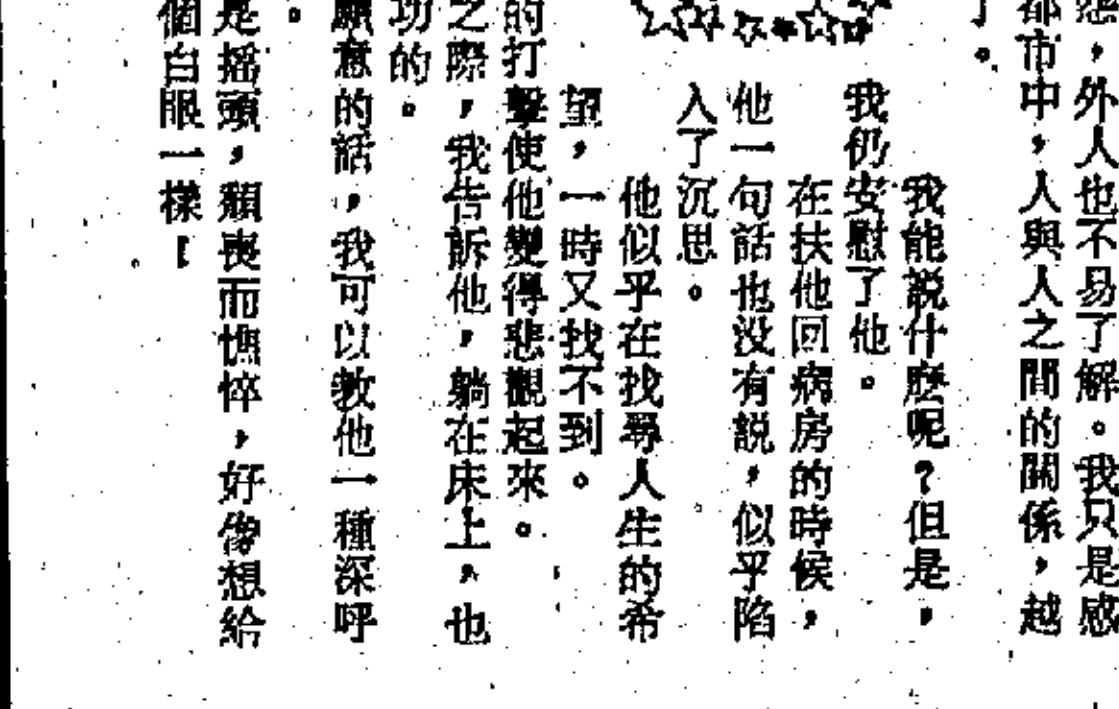 怨，外人也不易了解。我只是感
都市中，人與人之間的關係，越
了。
我能說什麽呢？但是，
我仍安慰了他。
在扶他回病房的時候，
他一句話也没有説，似乎陷
入了沉思。
他似乎在找尋人生的希
望，一時又找不到。
的打擊使他變得悲觀起來。
之際，我告訴他，躺在床上，也
功的。
願意的話，我可以教他一種深呼
。
是摇頭，頹喪而憔悴，好像想給
個白眼一樣！